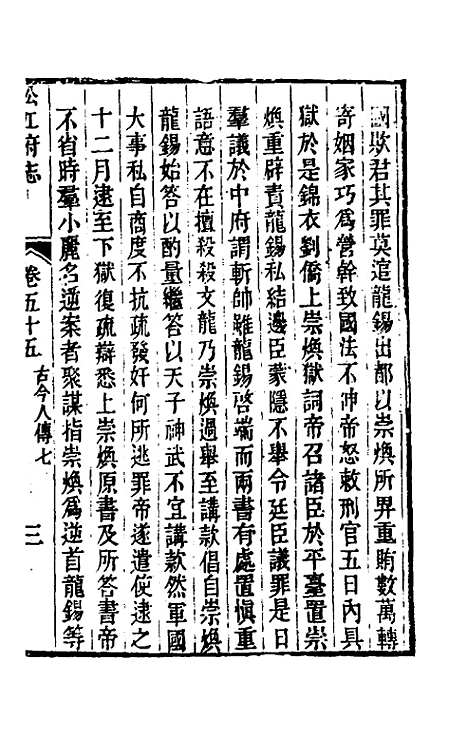 國欺君其罪莫逭龍錫出都以崇煥所畀重賄數萬轉
寄姻家巧爲營幹致國法不伸帝怒敕刑官五日內具
獄於是錦衣劉僑上崇煥獄詞帝召諸臣於平臺置崇
煥重辟責龍錫私結邊臣蒙隱不舉令廷臣議罪是日
羣議於中府謂斬帥雖龍錫啓端而兩書有處置愼重
語意不在擅殺殺文龍乃崇煥過舉至講款倡自崇煥
龍錫始答以酌量繼答以天子神武不宜講款然軍國
大事私自商度不抗疏發奸何所逃罪帝遂遣使逮之
十二月逮至下獄復疏辯悉上崇煥原書及所答書帝
不省時羣小麗名逆案者聚謀指崇煥爲逆首龍錫等
松江府志
卷五十五
古今人傳七
三